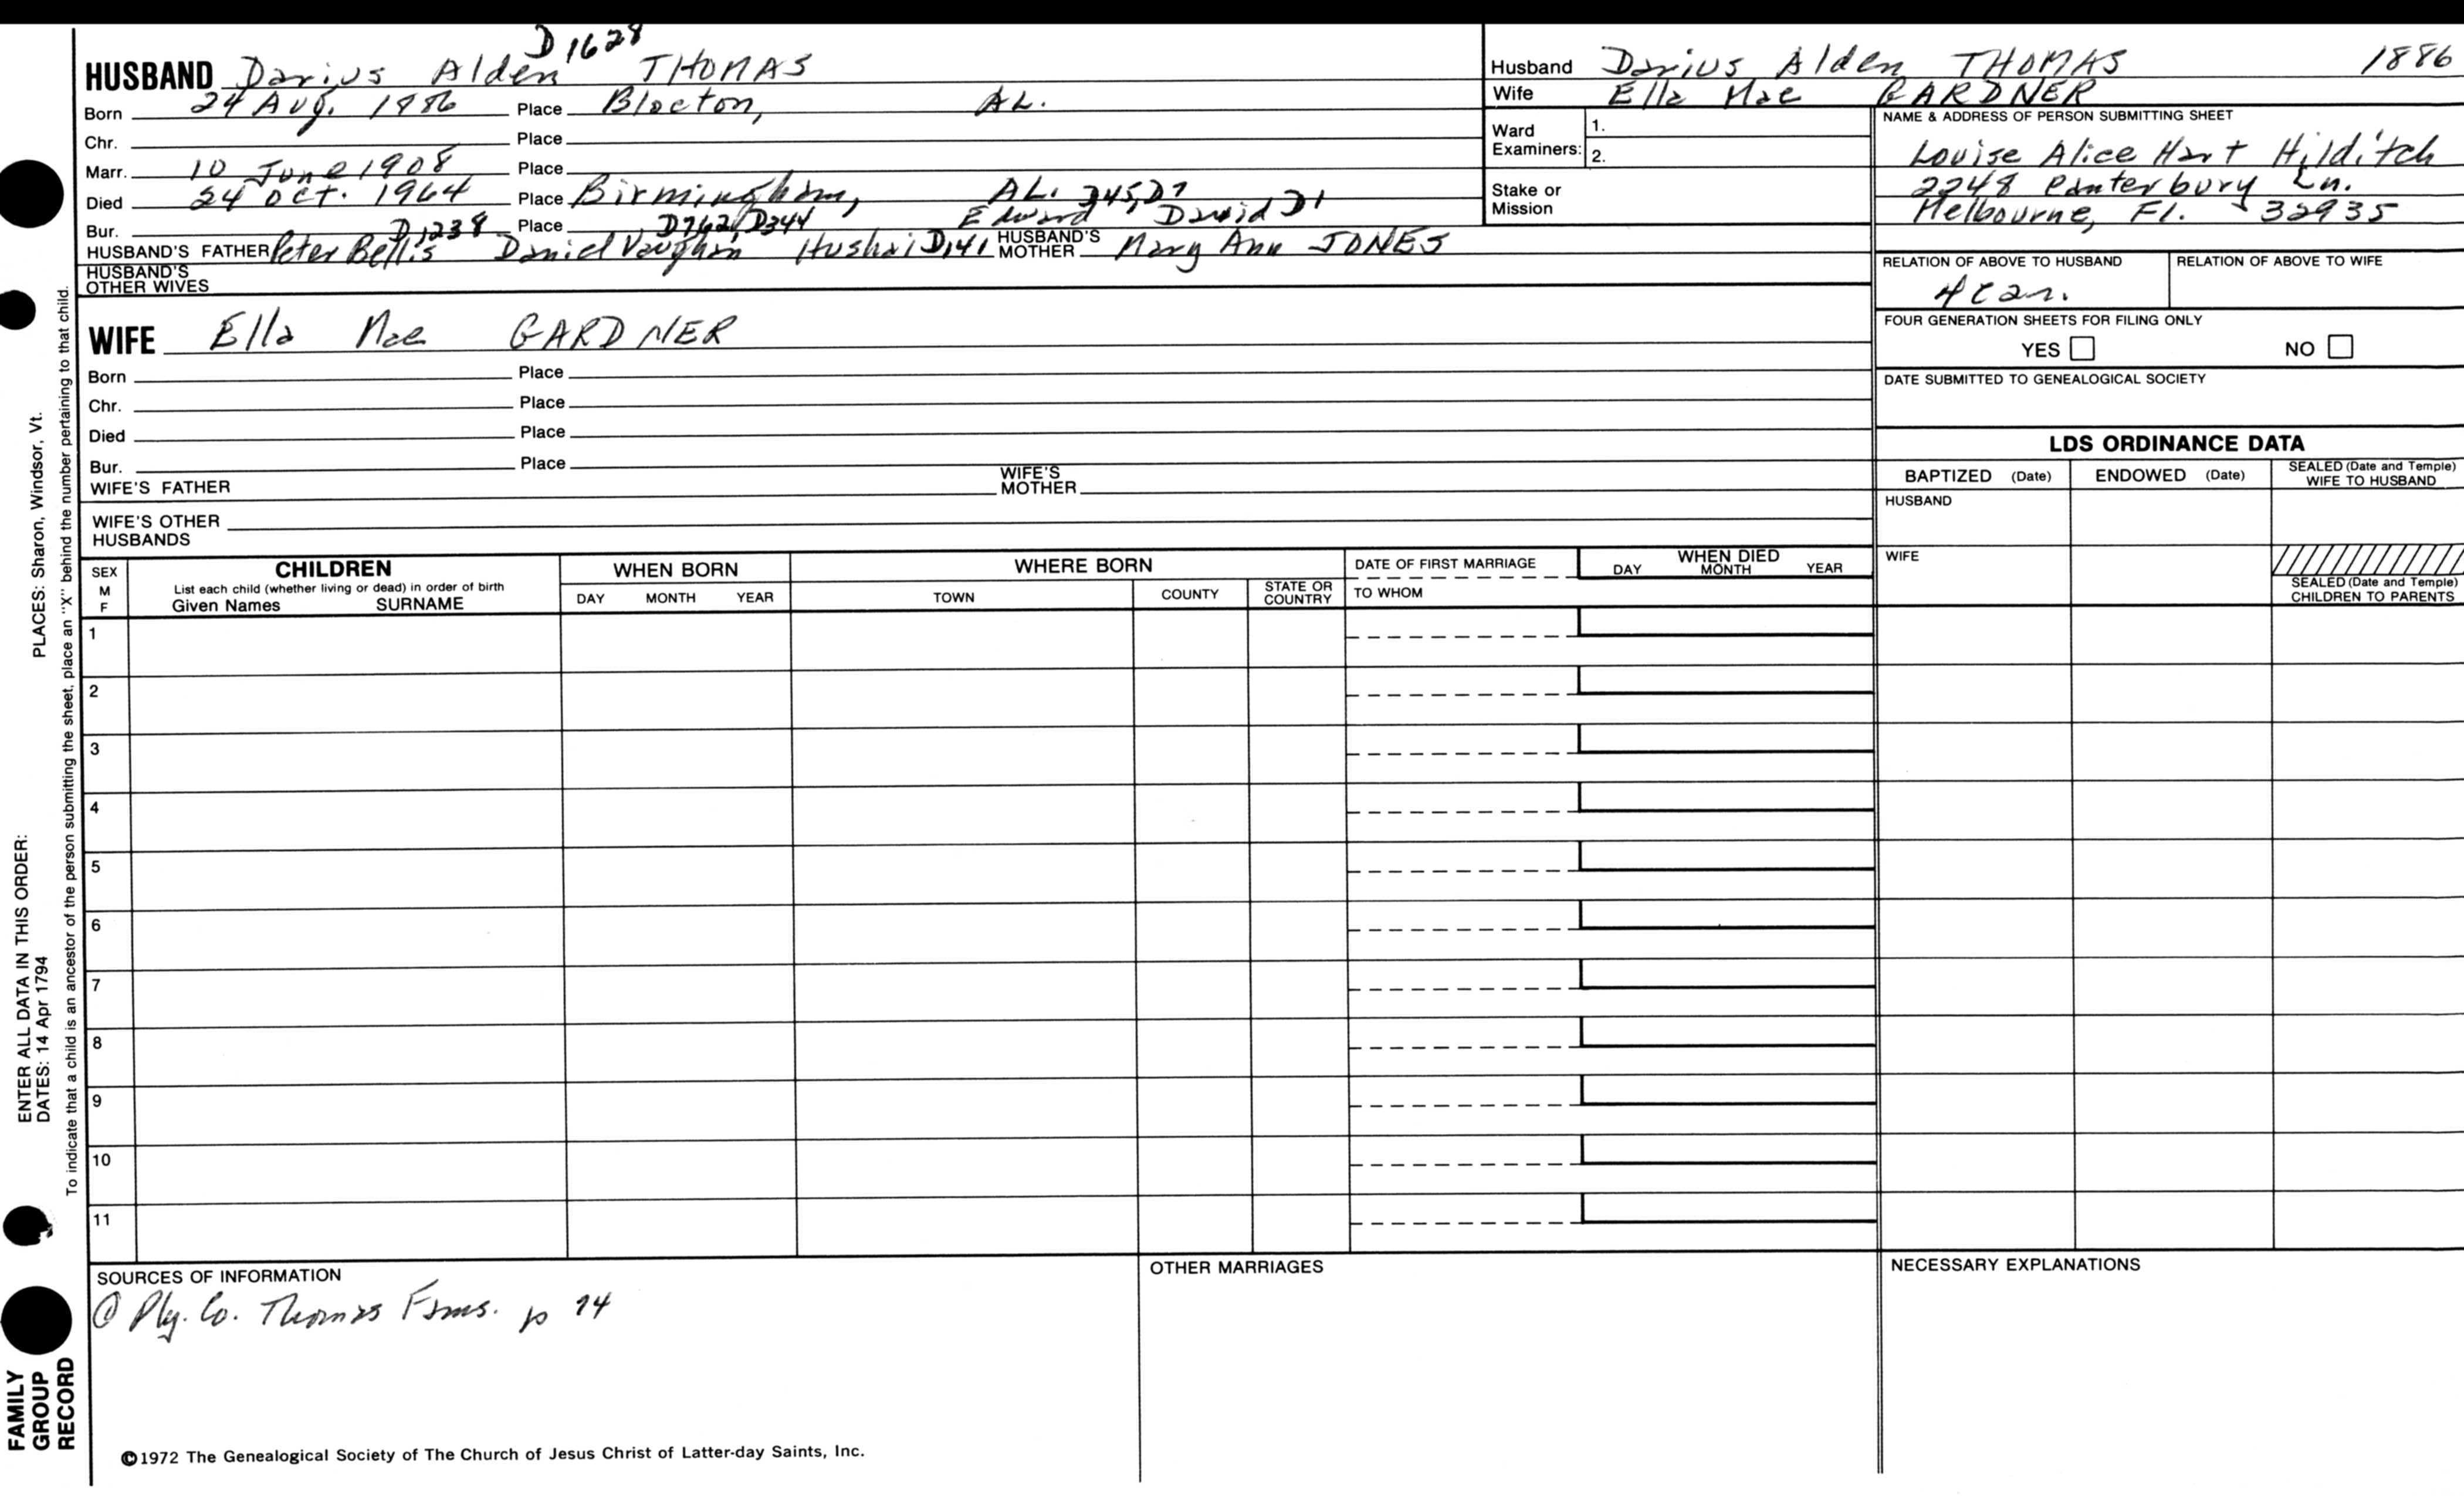 D 1628
HUSBAND Darius Alden THOMAS
Born 24 Aug. 1886 Place Blocton, AL.
Chr. Place
Marr. 10 June 1908 Place
Died 24 Oct. 1964 Place Birmingham, AL. D45, D7
Bur. D1238 Place D762, D344 Edward David D1
HUSBAND'S FATHER Peter Bellis Daniel Vaughan Hushai D141 HUSBAND'S MOTHER Mary Ann JONES
HUSBAND'S OTHER WIVES
WIFE Ella Mae GARDNER
Born Place
Chr. Place
Died Place
Bur. Place
WIFE'S FATHER WIFE'S MOTHER
WIFE'S OTHER HUSBANDS
Husband Darius Alden THOMAS 1886
Wife Ella Mae GARDNER
Ward Examiners: 1.
2.
Stake or Mission
NAME & ADDRESS OF PERSON SUBMITTING SHEET
Louise Alice Hart Hilditch
2248 Canterbury Ln.
Melbourne, Fl. 32935
RELATION OF ABOVE TO HUSBAND RELATION OF ABOVE TO WIFE
FOUR GENERATION SHEETS FOR FILING ONLY
YES NO
DATE SUBMITTED TO GENEALOGICAL SOCIETY
LDS ORDINANCE DATA
BAPTIZED (Date) ENDOWED (Date) SEALED (Date and Temple) WIFE TO HUSBAND
HUSBAND
WIFE
SEALED (Date and Temple) CHILDREN TO PARENTS
SEX M F CHILDREN WHEN BORN WHERE BORN DATE OF FIRST MARRIAGE WHEN DIED
List each child (whether living or dead) in order of birth
Given Names SURNAME DAY MONTH YEAR TOWN COUNTY STATE OR COUNTRY TO WHOM DAY MONTH YEAR
1
2
3
4
5
6
7
8
9
10
11
SOURCES OF INFORMATION
Ply. Co. Thomas Fams. p 74
OTHER MARRIAGES
NECESSARY EXPLANATIONS
©1972 The Genealogical Society of The Church of Jesus Christ of Latter-day Saints, Inc.
FAMILY
GROUP
RECORD
ENTER ALL DATA IN THIS ORDER:
DATES: 14 Apr 1794 PLACES: Sharon, Windsor, Vt.
To indicate that a child is an ancestor of the person submitting the sheet, place an "X" behind the number pertaining to that child.